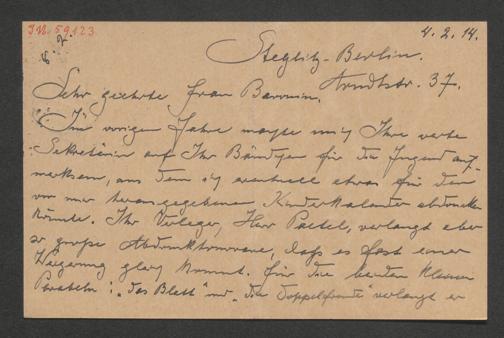 I.N. 59123
4. 2. 14.
Steglitz-Berlin.
Arndtstr. 37.
Sehr geehrte Frau Baronin,
Im vorigen Jahre machte mich Ihre werte
Sekretärin auf Ihr Bändchen für die Jugend auf-
merksam, aus dem ich eventuell etwas für den
von mir herausgegebenen Kinderkalender abdrucken
könnte. Ihr Verleger, Herr Paetel, verlangt aber
so große Abdruckhonorare, daß es fast einer
Weigerung gleich kommt. Für die beiden kleinen
Parabeln: „Das Blatt" und „Die Doppelfreude" verlangt er